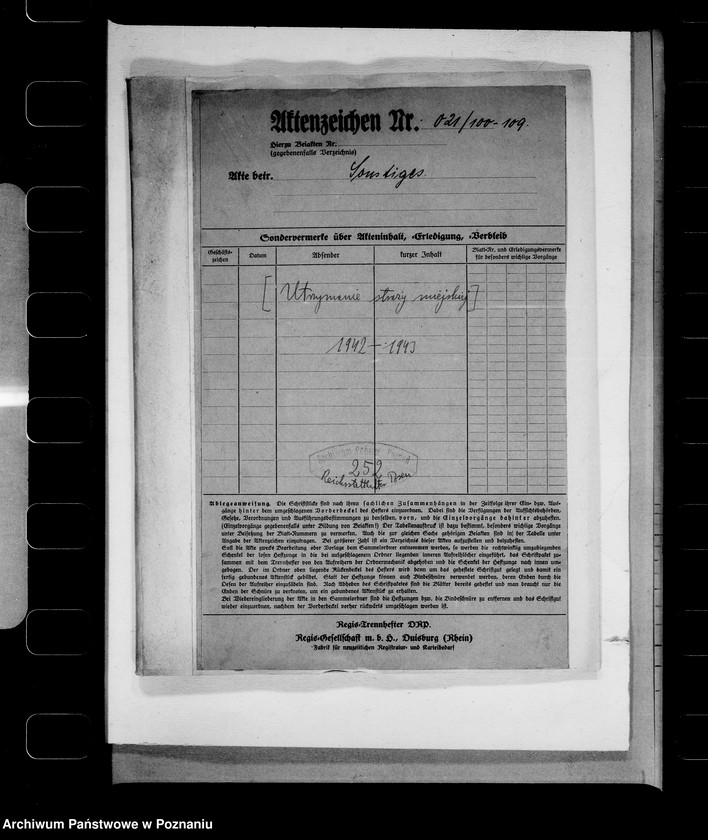 Aktenzeichen Nr. 021/100-109.
Hierzu Beiakten Nr.
(gegebenenfalls Verzeichnis)
Akte betr. Sonstiges.
Sondervermerke über Akteninhalt, -Erledigung, -Verbleib
Geschäfts-
zeichen
Datum
Absender
kurzer Inhalt
Blatt-Nr. und Erledigungsvermerke
für besonders wichtige Vorgänge
[Utrzymanie straży miejskiej]
1942 - 1943
252
Reichsstatthalter Posen
Ablegeanweisung. Die Schriftstücke sind nach ihren sachlichen Zusammenhängen in der Zeitfolge ihrer Ein- bzw. Aus-
gänge hinter dem umgeschlagenen Vorderdeckel des Heftes einzuordnen. Dabei sind die Verfügungen der Aufsichtsbehörden,
Gesetze, Verordnungen und Ausführungsbestimmungen zu denselben vorn, und die Einzelvorgänge dahinter abzuheften.
(Einzelvorgänge gegebenenfalls unter Bildung von Beiakten!) Der Tabellenaufdruck ist dazu bestimmt, besonders wichtige Vorgänge
unter Beisetzung der Blatt-Nummern zu vermerken. Auch die zur gleichen Sache gehörigen Beiakten sind in der Tabelle unter
Angabe der Aktenzeichen einzutragen. Bei größerer Zahl ist ein Verzeichnis dieser Akten aufzustellen und beizuheften.
Soll die Akte zwecks Bearbeitung oder Vorlage dem Sammelordner entnommen werden, so werden die rechtwinklig umzubiegenden
Schenkel der losen Heftzunge in die bei aufgeschlagenem Ordner liegenden inneren Aufreihlöcher eingeführt, das Schriftpaket zu-
sammen mit dem Trennhefter von den Aufreihern der Ordnermechanik abgehoben und die Schenkel der Heftzunge nach innen um-
gebogen. Der im Ordner oben liegende Rückendeckel des Heftes wird dann um das geheftete Schriftgut gelegt und damit ein
fertig gebundenes Aktenstück gebildet. Statt der Heftzunge können auch Bindeschnüre verwendet werden, deren Enden durch die
Ösen der Aufreiher einzufädeln sind. Nach Abheben des Schriftpaketes sind die Blätter bereits geheftet und man braucht nur die
Enden der Schnüre zu verknoten, um ein gebundenes Aktenstück zu erhalten.
Bei Wiedereingliederung der Akte in den Sammelordner sind die Heftzungen bzw. die Bindeschnüre zu entfernen und das Schriftgut
wieder einzuordnen, nachdem der Vorderdeckel vorher rückwärts umgeschlagen worden ist.
Regis-Trennhefter DRP.
Regis-Gesellschaft m. b. H., Duisburg (Rhein)
Fabrik für neuzeitlichen Registratur- und Karteibedarf
Archiwum Państwowe w Poznaniu